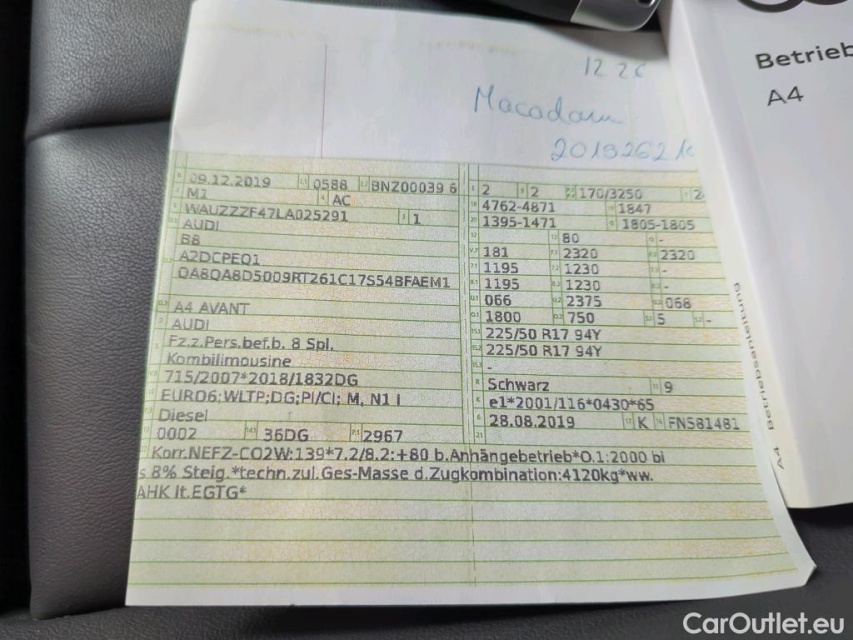 12 26
Macadam
Betrieb
A4
09.12.2019 0588 BNZ00039 6
M1 AC
WAUZZZF47LA025291 1
AUDI
B8
A2DCPEQ1
QA8QA8D5009RT261C17S54BFAEM1
A4 AVANT
AUDI
Fz.z.Pers.bef.b. 8 Spl.
Kombilimousine
715/2007*2018/1832DG
EURO6;WLTP;DG;PI/CI; M, N1 I
Diesel
0002 36DG 2967
2 2 170/3250
4762-4871 1847
1395-1471 1805-1805
80 -
181 2320 2320
1195 1230 -
1195 1230 -
066 2375 068
1800 750 5 -
225/50 R17 94Y
225/50 R17 94Y
-
Schwarz 9
e1*2001/116*0430*65
28.08.2019 K FN581481
Korr.NEFZ-CO2W:139*7.2/8.2:+80 b.Anhängebetrieb*O.1:2000 bi
s 8% Steig.*techn.zul.Ges-Masse d.Zugkombination:4120kg*ww.
AHK lt.EGTG*
A4 Betriebsanleitung
CarOutlet.eu